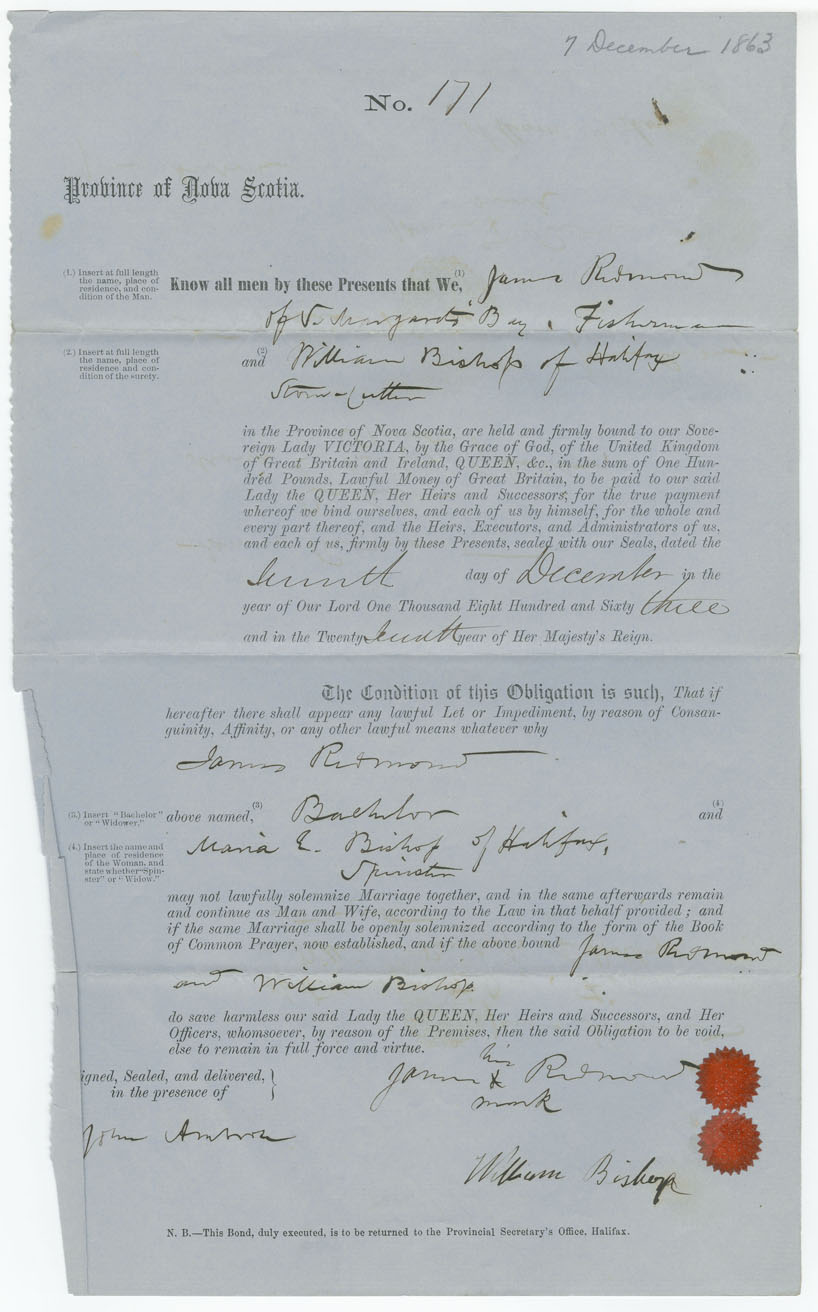 7 December 1863
No. 171
Province of Nova Scotia.
(1.) Insert at full length
the name, place of
residence, and con-
dition of the Man.
Know all men by these Presents that We,(1) James Redmond
of St. Margarets Bay, Fisherman
(2.) Insert at full length
the name, place of
residence and con-
dition of the surety.
and(2) William Bishop of Halifax
Stone-Cutter
in the Province of Nova Scotia, are held and firmly bound to our Sove-
reign Lady VICTORIA, by the Grace of God, of the United Kingdom
of Great Britain and Ireland, QUEEN, &c., in the sum of One Hun-
dred Pounds, Lawful Money of Great Britain, to be paid to our said
Lady the QUEEN, Her Heirs and Successors, for the true payment
whereof we bind ourselves, and each of us by himself, for the whole and
every part thereof, and the Heirs, Executors, and Administrators of us,
and each of us, firmly by these Presents, sealed with our Seals, dated the
Seventh day of December in the
year of Our Lord One Thousand Eight Hundred and Sixty three
and in the Twenty Seventh year of Her Majesty's Reign.
The Condition of this Obligation is such, That if
hereafter there shall appear any lawful Let or Impediment, by reason of Consan-
guinity, Affinity, or any other lawful means whatever why
James Redmond
(3.) Insert "Bachelor"
or "Widower."
above named,(3) Bachelor and(4)
(4.) Insert the name and
place of residence
of the Woman, and
state whether "Spin-
ster" or "Widow."
Maria E. Bishop of Halifax,
Spinster
may not lawfully solemnize Marriage together, and in the same afterwards remain
and continue as Man and Wife, according to the Law in that behalf provided; and
if the same Marriage shall be openly solemnized according to the form of the Book
of Common Prayer, now established, and if the above bound James Redmond
and William Bishop
do save harmless our said Lady the QUEEN, Her Heirs and Successors, and Her
Officers, whomsoever, by reason of the Premises, then the said Obligation to be void,
else to remain in full force and virtue.
igned, Sealed, and delivered,
in the presence of
his
James X Redmond
mark
John Ambrose
William Bishop
N. B.—This Bond, duly executed, is to be returned to the Provincial Secretary's Office, Halifax.